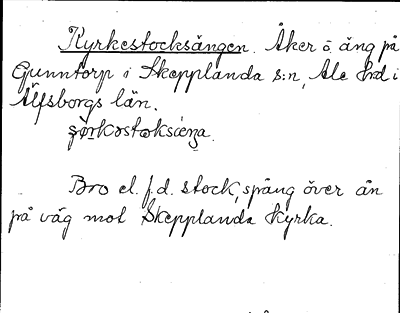 Kyrkestocksängen. Åker o. äng på
Gunntorp i Skepplanda s:n, Ale hrd i
Älfsborgs län.
Bro el. f.d. stock, spång över ån
på väg mot Skepplanda kyrka.